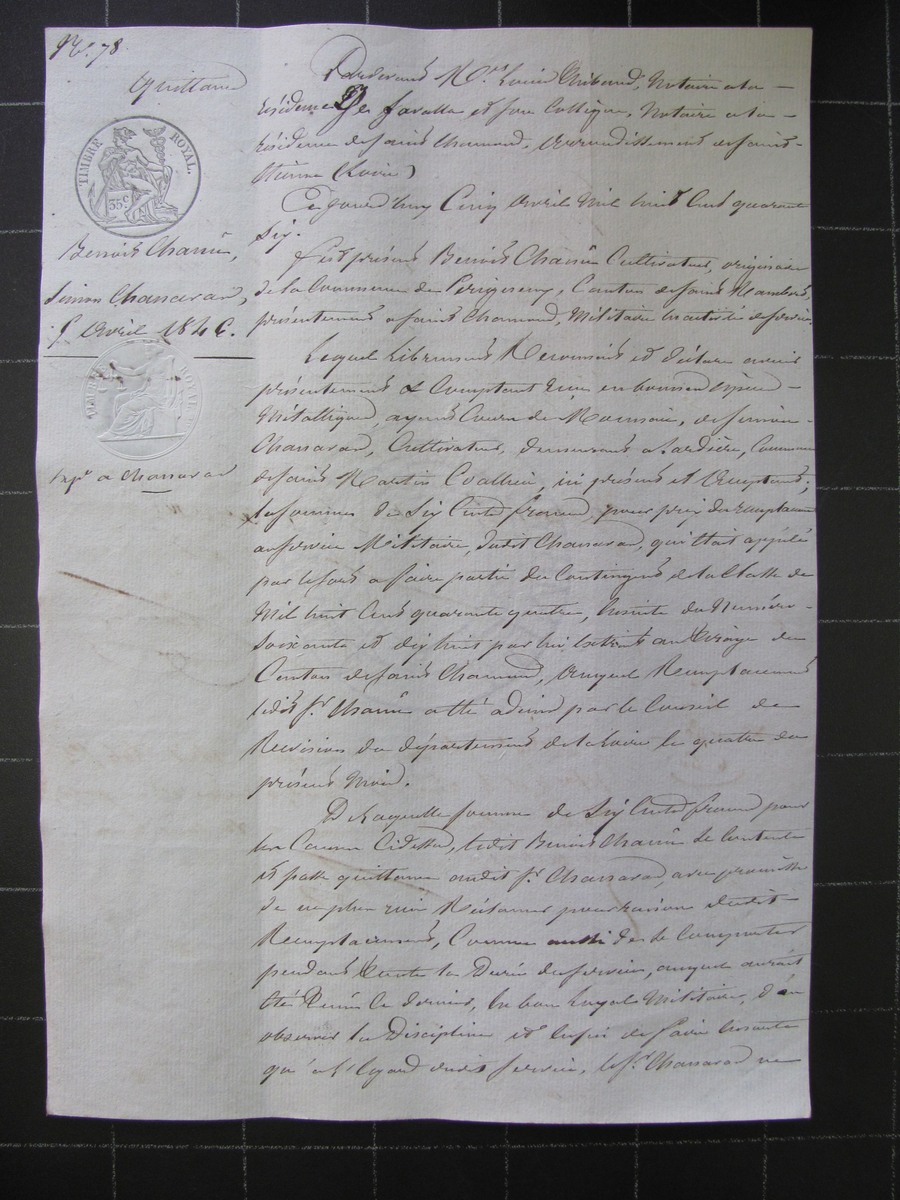 No. 78.
Quittance
TIMBRE ROYAL.
35 c
Benoit Chanin,
Simon Chanavas,
5 Avril 1846.
TIMBRE ROYAL
Expn a Chanavas
Pardevant Me Louis Thibaud, Notaire à la
résidence de favalla et son Collègue, Notaire à la
résidence de saint Chamond, arrondissement de saint
Etienne (Loire)
Cejourd'huy Cinq avril Mil huit Cent quarante
six.
fut présent Benoit Chanin Cultivateur, originaire
de la Commune de Périgneux, Canton de saint Rambert,
présentement a saint Chamond, Militaire
Lequel librement Reconnait et déclare avoir
présentement & Comptant reçu, en bonnes espèces
Métalliques, ayant Cours de Monnoie, de simon
Chanavas, Cultivateur, demeurant a Lardière, Commune
de saint Martin Coallieu, ici présent et acceptant,
la somme de Six Cents francs, pour prix du remplacement
au service Militaire, dudit Chanavas, qui était appelé
par le sort a faire partie du Contingent de la Classe de
Mil huit Cent quarante quatre, ensuite du Numéro
soixante et dix huit par lui extrait au tirage du
Canton de saint Chamond, auquel Remplacement
ledit sr. Chanin a été admis par le Conseil de
Revision du département de la Loire le quatre du
présent Mois.
De laquelle somme de Six Cents francs pour
les Causes Cidessus, ledit Benoit Chanin se Contente
et passe quittance audit sr. Chanavas, avec promesse
de ne plus rien Réclamer pour raison dudit
Remplacement, Comme aussi de se Comporter
pendant toute la Durée du service, auquel aurait
été tenu ce dernier, en bon & loyal Militaire, d'en
observer la Discipline et enfin de faire ensorte
qu'a l'égard dudit service, le sr. Chanavas ne